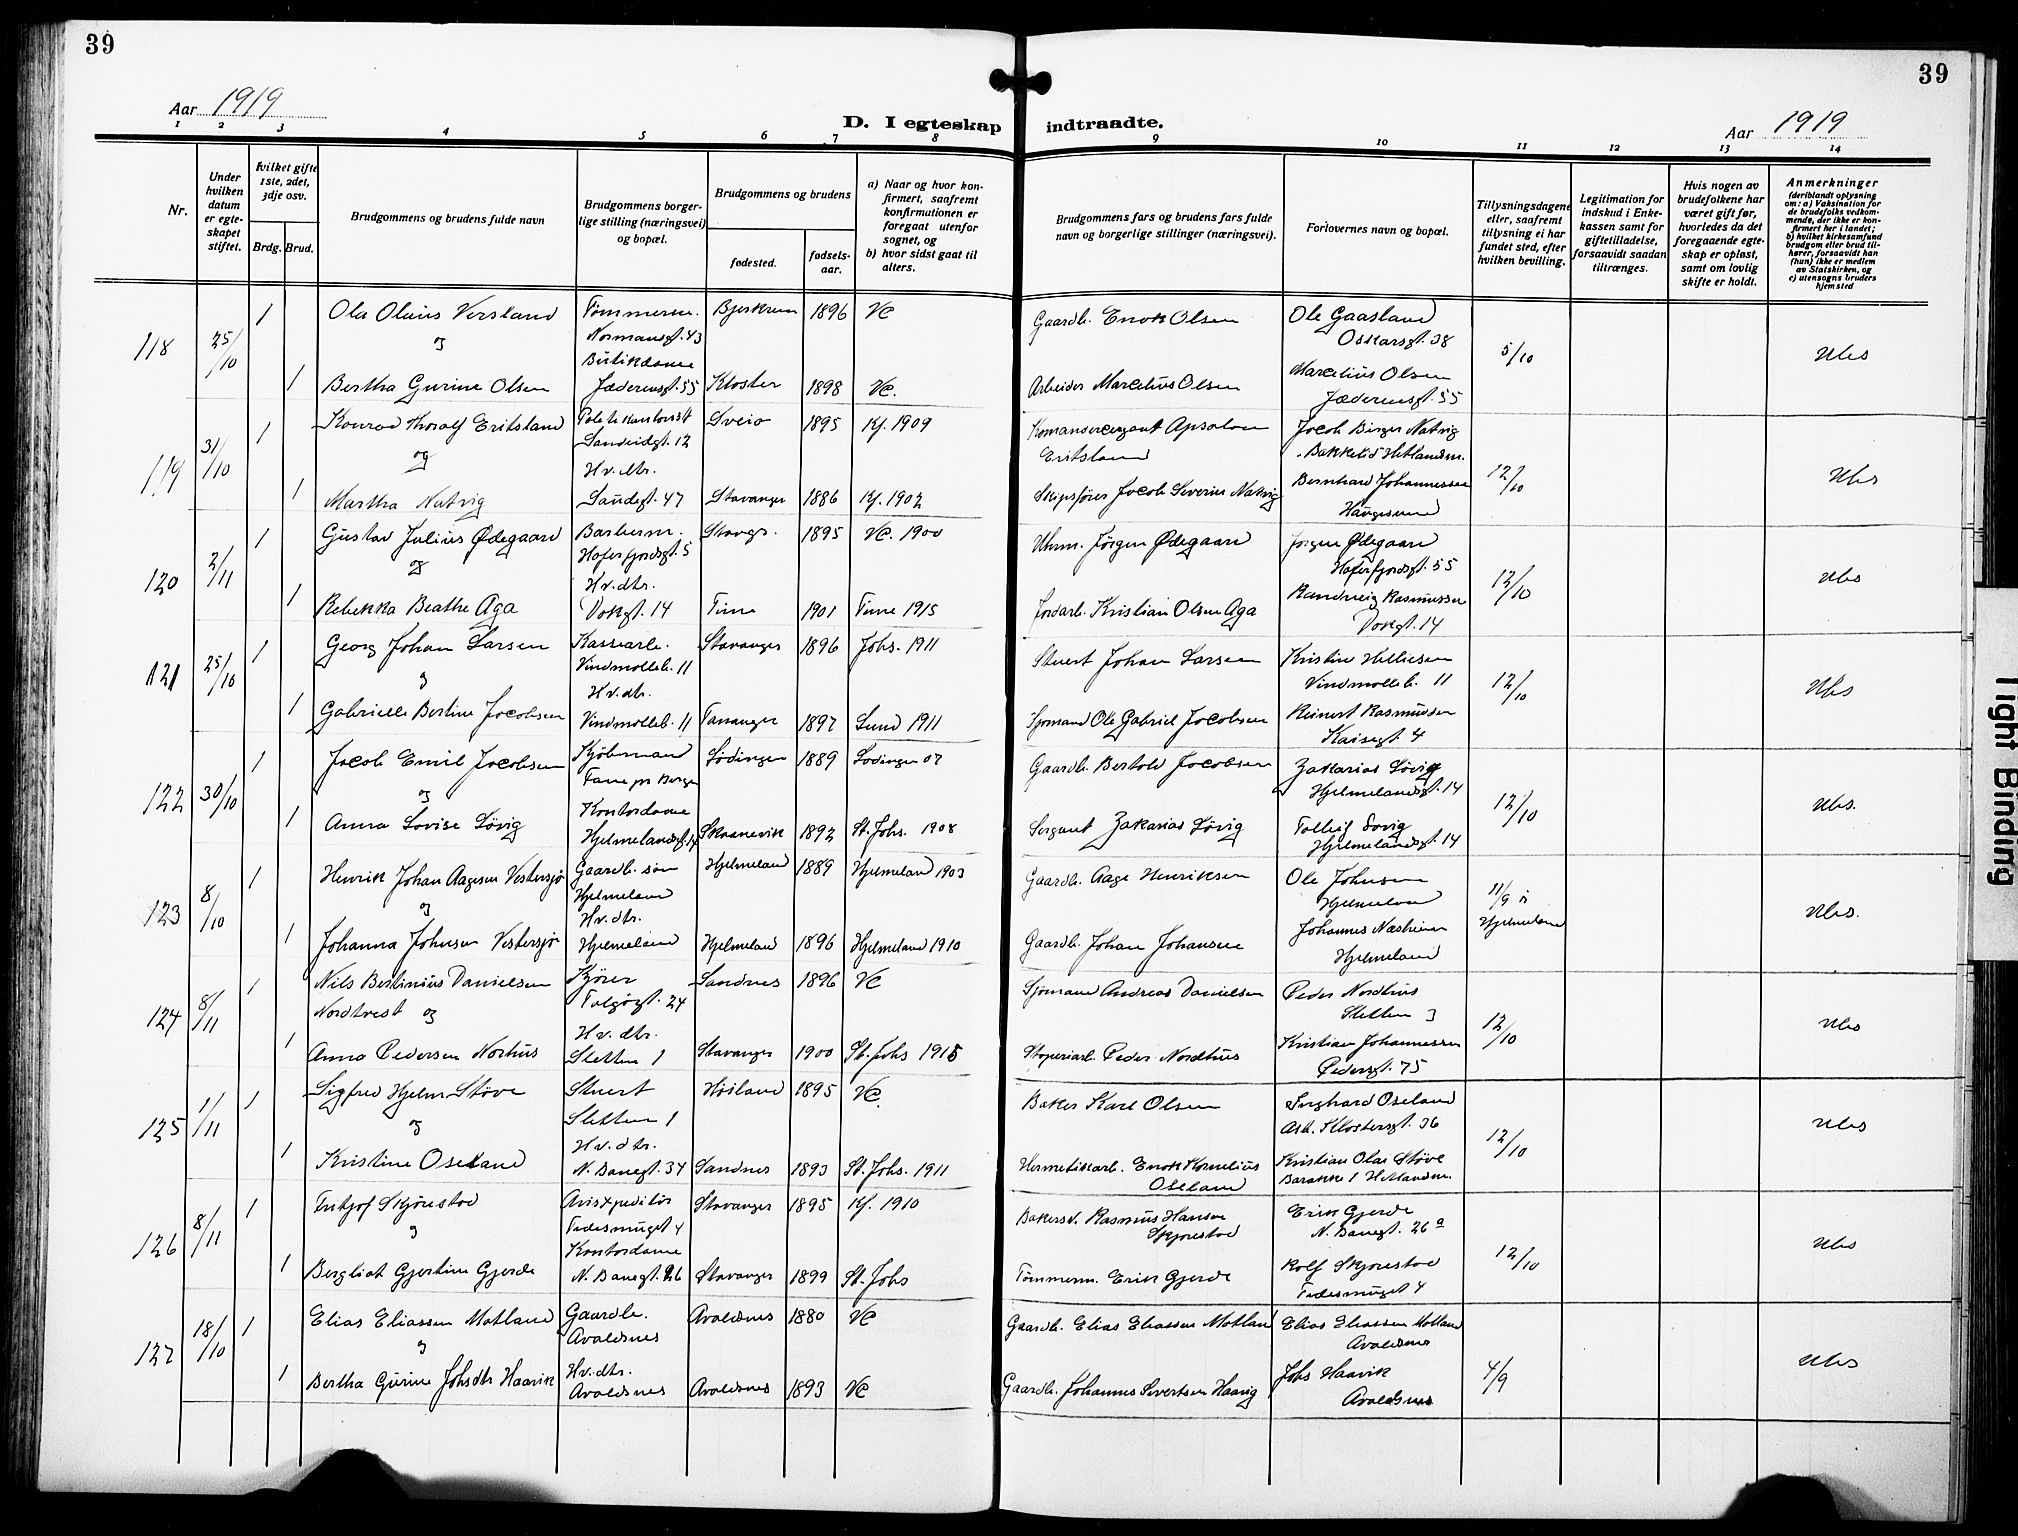 39
39
Aar 1919
D. I egteskap indtraadte.
Aar 1919
1 2 3 4 5 6 7 8 9 10 11 12 13 14
Nr.
Under hvilken datum er egteskapet stiftet.
hvilket gifte 1ste, 2det, 3dje osv.
Brdg. Brud.
Brudgommens og brudens fulde navn
Brudgommens borgerlige stilling (næringsvei) og bopæl.
Brudgommens og brudens
fødested.
fødselsaar.
a) Naar og hvor konfirmert, saafremt konfirmationen er foregaat utenfor sognet, og
b) hvor sidst gaat til alters.
Brudgommens fars og brudens fars fulde navn og borgerlige stillinger (næringsvei).
Forlovernes navn og bopæl.
Tillysningsdagene eller, saafremt tillysning ei har fundet sted, efter hvilken bevilling.
Legitimation for indskud i Enkekassen samt for giftetilladelse, forsaavidt saadan tiltrænges.
Hvis nogen av brudefolkene har været gift før, hvorledes da det foregaaende egteskap er opløst, samt om lovlig skifte er holdt.
Anmerkninger
(deriblandt oplysning om: a) Vaksination for de brudefolks vedkommende, der ikke er konfirmert her i landet; b) hvilket kirkesamfund brudgom eller brud tilhører, forsaavidt han (hun) ikke er medlem av Statskirken, og c) utensogns bruders hjemsted
118 25/10
1 Ola Olaus Versland Tømmerm. Normansgt. 43 Bjerkreim 1896 VC Gaardb. Enok Olsen Ole Gaasland Oskarsgt. 38
og
1 Bertha Gurine Olsen Butikdame Jæderensgt. 55 Kloster 1898 VC. Arbeider Marcelius Olsen Marcelius Olsen Jæderensgt. 55
5/10
119 31/10
1 Konrad Thoralf Eritsland Sandeidgt. 12 Sveio 1895 Kf. 1909 Apsalon Eritsland Jacob Birger Natvig Bakkelid Hetlandsm.
og
1 Martha Natvig Hv. dtr. Sandsgt. 47 Stavanger 1886 Kf. 1902 Skipsfører Jacob Severin Natvig Bernhard Johannessen Haugesund
12/10
120 2/11
1 Gustav Julius Ødegaard Barberm. Hafrsfjordsgt. 5 Stavgr. 1895 VC. 1900 Uhrm. Jørgen Ødegaard Jørgen Ødegaard Hafrsfjordsgt. 55
og
1 Rebekka Beathe Aga Hv. dtr. Vokgt. 14 Time 1901 Time 1915 Jordarb. Kristian Olsen Aga Randveig Rasmussen Vokgt. 14
12/10
121 25/10
1 Georg Johan Larsen Kassearb. Vindmølleb. 11 Stavanger 1896 Johs. 1911 Stuert Johan Larsen Kristine Helliesen Vindmølleb. 11
og
1 Gabrielle Bertine Jacobsen Hv. dtr. Vindmølleb. 11 Tananger 1897 Lund 1911 Sjømand Ole Gabriel Jacobsen Reinert Rasmussen Kaisegt. 4
12/10
122 30/10
1 Jacob Emil Jacobsen Kjøbmand Fane pr Bergen Lødingen 1889 Lødingen 07 Gaardb. Bertold Jacobsen Zakarias Løvig Hjelmelandsgt. 14
og
1 Anna Lovise Løvig Kontordame Hjelmelandsgt. 14 Skaanevik 1892 St. Johs. 1908 Sergant Zakarias Løvig Tolleif Løvig Hjelmelandsgt. 14
12/10
123 8/10
1 Henrik Johan Aagesen Vestersjø Gaardb. søn Hjelmeland Hjelmeland 1889 Hjelmeland 1903 Gaardb. Aage Henriksen Ole Johnsen Hjelmeland
og
1 Johanna Johnsen Vestersjø Hv. dtr. Hjelmeland Hjelmeland 1896 Hjelmeland 1910 Gaardb. Johan Johansen Johannes Næsheim Hjelmeland
11/9 i Hjelmeland
124 8/11
1 Nils Bertinius Danielsen Nordtvest og Kjører Talgøgt. 24 Sandnes 1896 VC Sjømand Andreas Danielsen Peder Nordhus Sletten 3
1 Anna Pedersen Norhus Hv. dtr. Sletten 1 Stavanger 1900 St. Johs 1915 Støperiarb. Peder Nordhus Kristian Johannessen Pedersgt. 75
12/10
125 1/11
1 Sigfred Hjelm Støve Stuert Sletten 1 Høiland 1895 VC. Baker Karl Olsen Oseland Arb. Klostergt. 36
og
1 Kristine Oseland Hv. dtr. N. Banegt. 34 Sandnes 1893 St. Johs. 1911 Hermetikarb. Enok Kornelius Oseland Kristian Olai Støve Barakke 1 Hetlandsm.
12/10
126 8/11
1 Fritjof Skjørestad Avisexpeditør 4 Stavanger 1895 Kf. 1910 Bakersv. Rasmus Hansen Skjørestad Erik Gjerde N. Banegt. 26a
og
1 Bergliot Gjertine Gjerde Kontordame N. Banegt. 26 Stavanger 1899 St. Johs Tømmerm. Erik Gjerde Rolf Skjørestad 4
12/10
127 18/10
1 Elias Eliassen Motland Gaardb. Avaldsnes Avaldsnes 1880 VC Gaardb. Elias Eliassen Motland Elias Eliassen Motland Avaldsnes
og
1 Bertha Gurine Johsdtr Haavik Hv. dtr. Avaldsnes Avaldsnes 1893 VC Gaardb. Johannes Sivertsen Haavig Johs Haavik Avaldsnes
4/9
Tight Binding